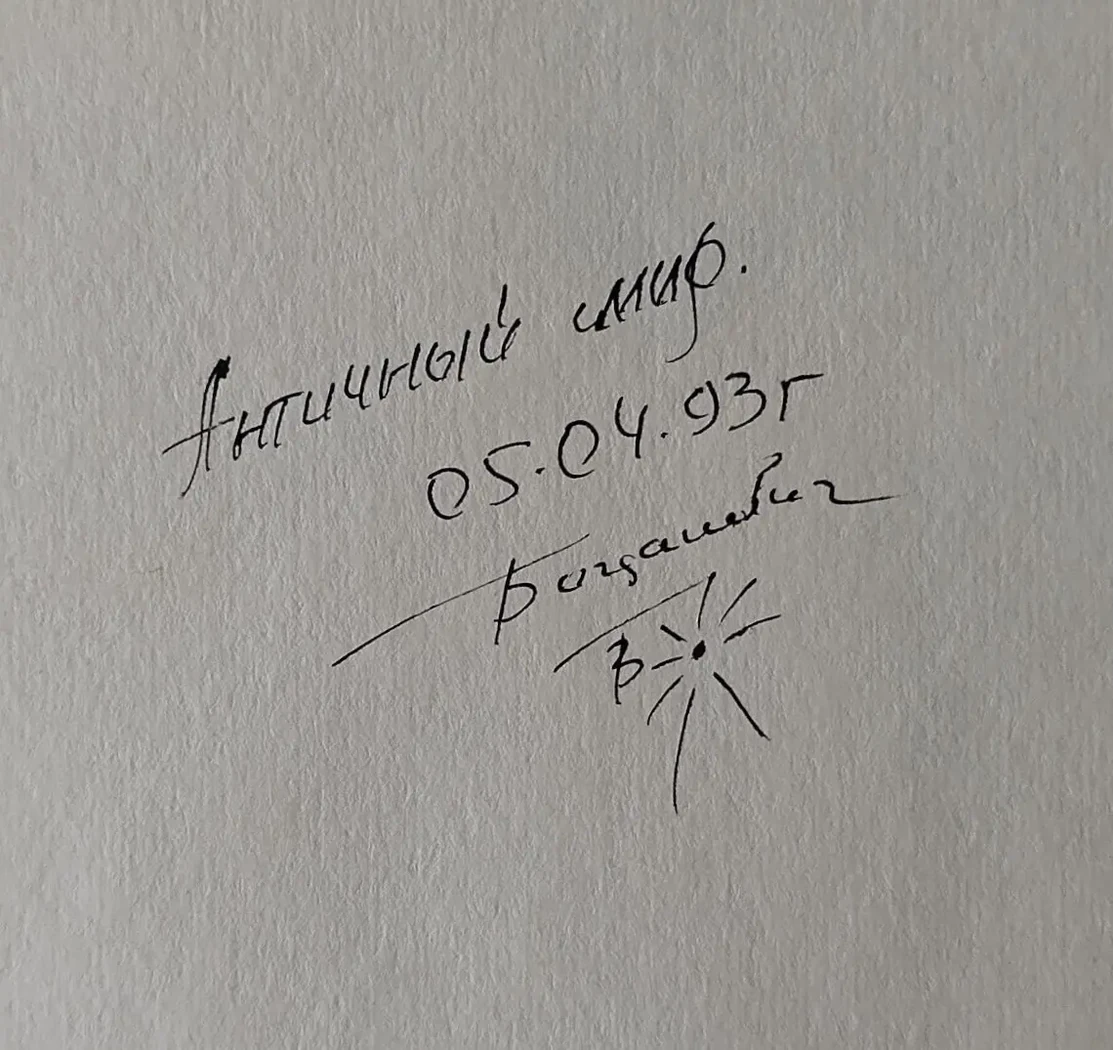 Античный мир.
05.04.93г
Богданович
В